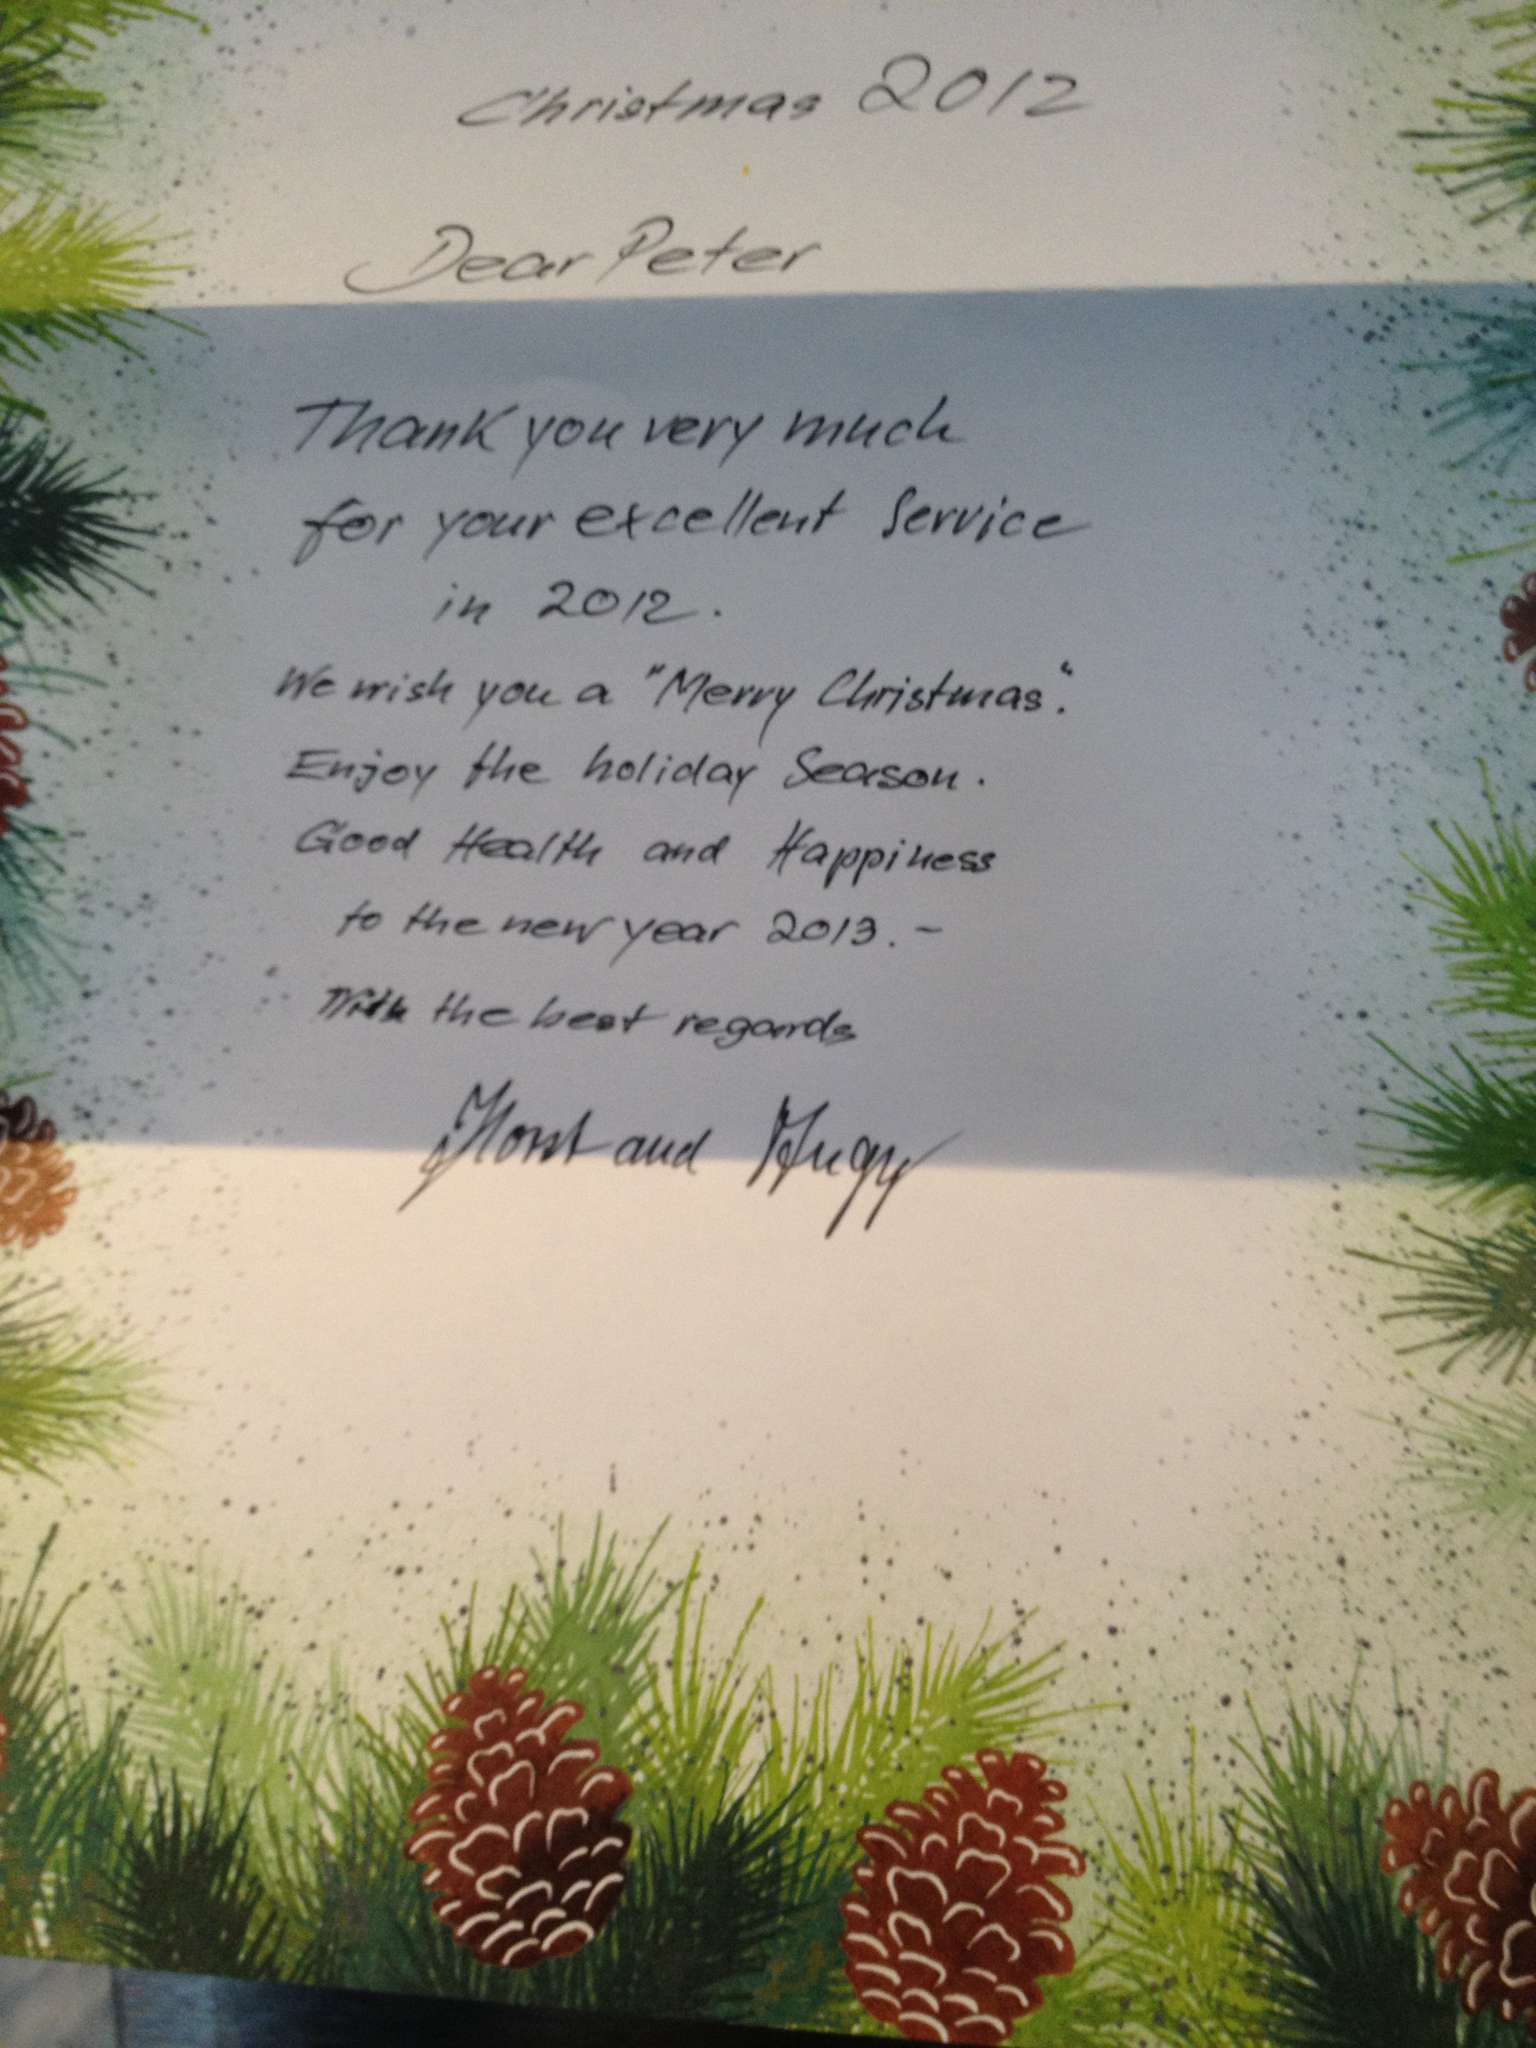 Christmas 2012
Dear Peter
Thank you very much
for your excellent Service
in 2012.
We wish you a "Merry Christmas".
Enjoy the holiday Season.
Good Health and Happiness
to the new year 2013. -
With the best regards
Horst and